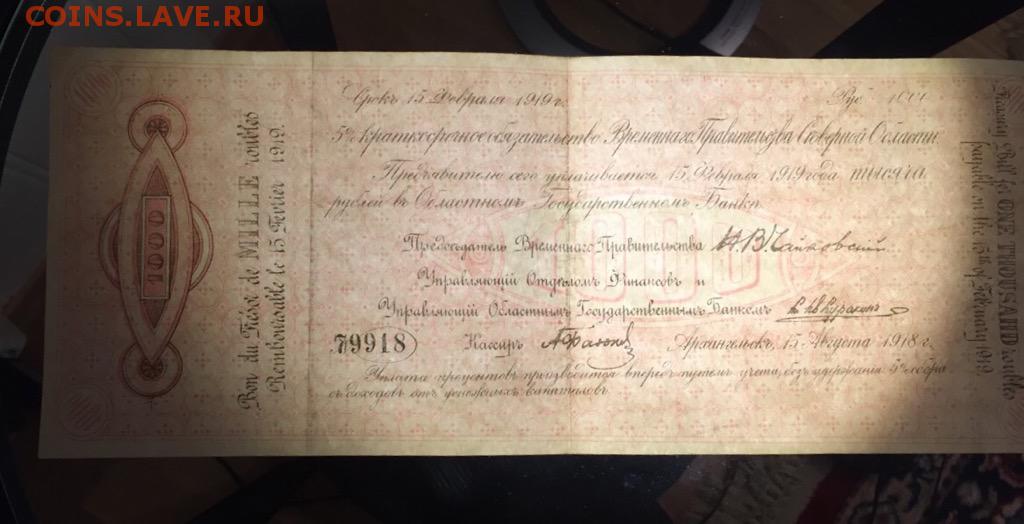 COINS.LAVE.RU
Срокъ 15 Февраля 1919 г.
Руб. 1000
5% краткосрочное обязательство Временнаго Правительства Сѣверной Области.
Предъявителю сего уплачивается 15 Февраля 1919 года тысяча
рублей въ Областномъ Государственномъ Банкѣ.
Предсѣдатель Временнаго Правительства Н.В.Чайковский
Управляющій Отдѣломъ Финансовъ и
Управляющій Областнымъ Государственнымъ Банкомъ Куракинъ
79918
Кассиръ
Архангельскъ, 15 Августа 1918 г.
Уплата процентовъ производится впередъ путемъ учета, безъ удержанія 5% сбора
съ доходовъ отъ денежныхъ капиталовъ.
1000
Bon du Trésor de MILLE roubles
Remboursable le 15 Février 1919.
Treasury Bill for ONE THOUSAND roubles
payable on the 15th of February 1919.
1000